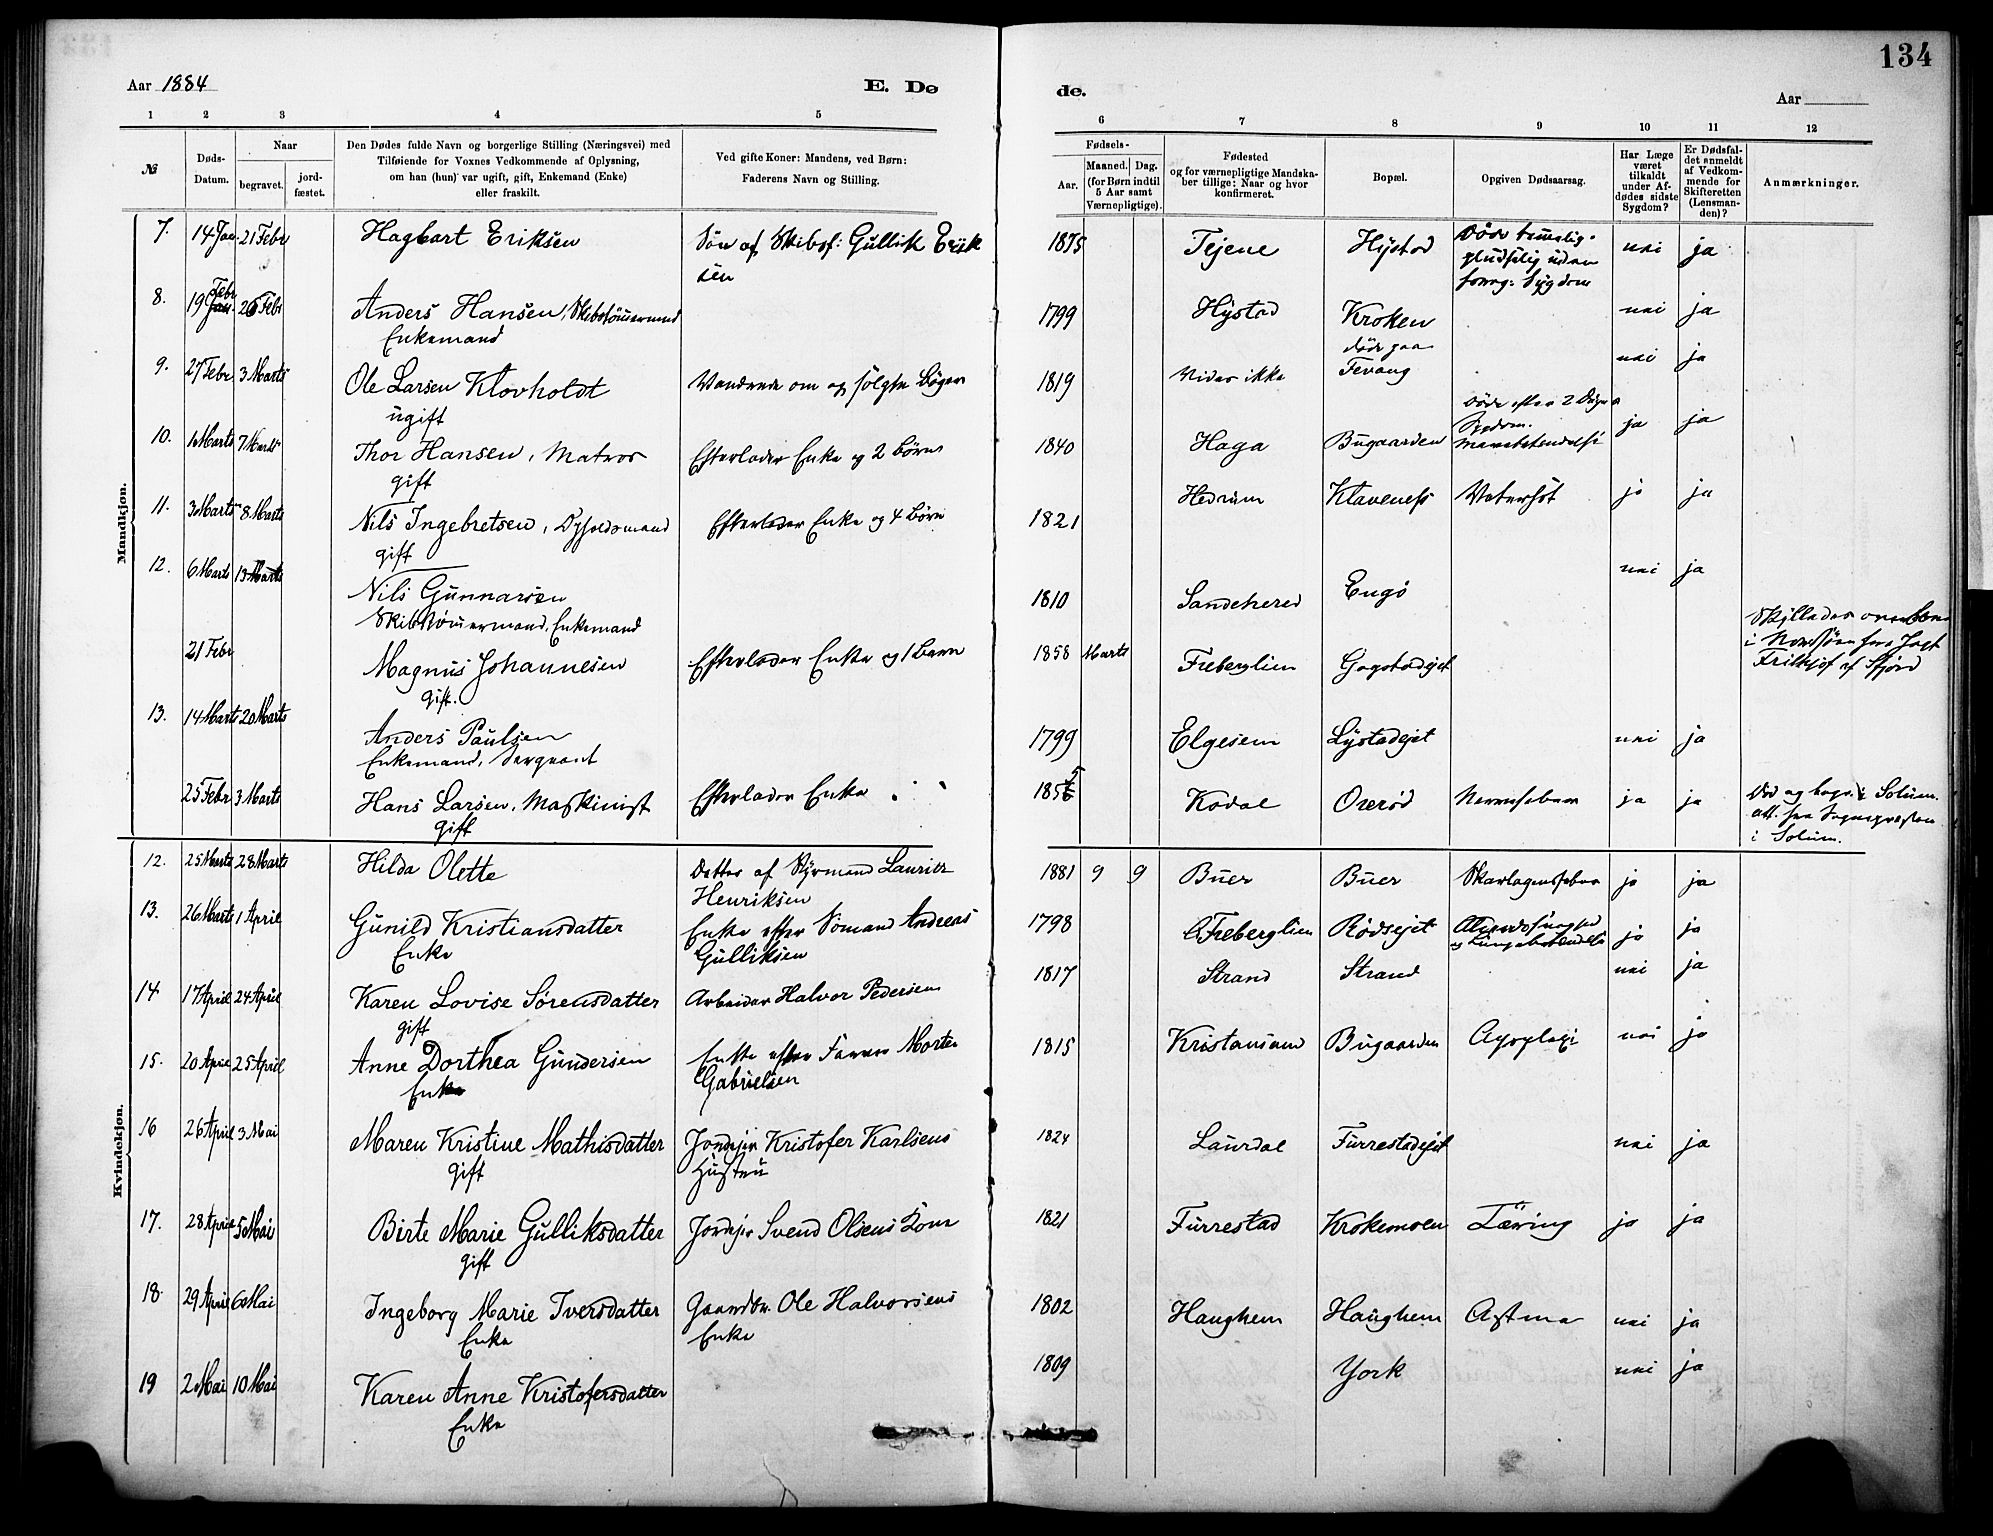 134
Aar 1884
E. Dø
de.
Aar
1 2 3 4 5 6 7 8 9 10 11 12
№
Døds-
Datum.
Naar
begravet.
jord-
fæstet.
Den Dødes fulde Navn og borgerlige Stilling (Næringsvei) med
Tilføiende for Voxnes Vedkommende af Oplysning,
om han (hun) var ugift, gift, Enkemand (Enke)
eller fraskilt.
Ved gifte Koner: Mandens, ved Børn:
Faderens Navn og Stilling.
Fødsels-
Aar.
Maaned. Dag.
(for Børn indtil
5 Aar samt
Værnepligtige).
Fødested
og for værnepligtige Mandska-
ber tillige: Naar og hvor
konfirmeret.
Bopæl.
Opgiven Dødsaarsag.
Har Læge
været
tilkaldt
under Af-
dødes sidste
Sygdom?
Er Dødsfal-
det anmeldt
af Vedkom-
mende for
Skifteretten
(Lensman-
den)?
Anmærkninger.
Mandkjøn.
7. 14 Jan 21 Febr Hagbart Eriksen Søn af Skibsf: Gullik Erik
sen
1875 Tejene Hystad Døde temmelig
pludselig uden
foreg: Sygdom
nei ja
8. 19 Febr 26 Febr Anders Hansen, Skibstømermand
Enkemand
1799 Hystad Kroken nei ja
9. 27 Febr 3 Marts Ole Larsen Klovholdt Vandrede om og solgte Bøger
ugift
1819 Vides ikke døde paa
Fevang
nei ja
10. 1 Marts 7 Marts Thor Hansen, Matros Efterlader Enke og 2 Børn
gift
1840 Haga Bugaarden Døde efter 2 Dages
Sygdom.
ja ja
11. 3 Marts 8 Marts Nils Ingebretsen, Efterlader Enke og 4 Børn
gift
1821 Hedrum Klaveness Vatersot ja ja
12. 6 Marts 13 Marts Nils Gunnarsen
Skibstømermand, Enkemand
1810 Sandeherred Engø nei ja
21 Febr Magnus Johannesen Efterlader Enke og 1 Barn
gift.
1858 Marts Freberglien Gogstadejet
i Nordsøen fra Jagt
Frithjof af Sfjord
13. 14 Marts 20 Marts Anders Paulsen
Enkemand, Sergeant
1799 Elgesem Lystadejet nei ja
25 Febr 3 Marts Hans Larsen, Maskinist Efterlader Enke
gift
185 Kodal Orerød Nervefeber ja ja Død og begr. i Solum.
att. fra Sognepræsten
i Solum.
Kvindekjøn.
12. 25 Marts 28 Marts Hilda Olette Datter af Styrmand Lauritz
Henriksen
1881 9 9 Buer Buer Skarlagensfeber ja ja
13. 26 Marts 1 April Gunild Kristiansdatter Enke efter Sømand Andreas
Enke Gulliksen
1798 Freberglien Rødsejet Alderdomssvaghed
og Lungebetændelse
ja ja
14 17 April 24 April Karen Lovise Sørensdatter Arbeider Halvor Pedersen
gift
1817 Strand Strand nei ja
15. 20 April 25 April Anne Dorthea Gundersen Enke efter Farver Morten
Enke Gabrielsen
1815 Kristiansand Bugaarden Apoplexi nei ja
16 26 April 3 Mai Maren Kristine Mathisdatter Jordejer Kristofer Karlsens
gift Hustru
1824 Laurdal Furrestadejet nei ja
17. 28 April 5 Mai Birte Marie Gulliksdatter Jordejer Svend Olsens Kone
gift
1821 Furrestad Krokemoen Tæring ja ja
18. 29 April 6 Mai Ingeborg Marie Iversdatter Gaardbr. Ole Halvorsens
Enke Enke
1802 Haughem Haughem Astma nei ja
19 2 Mai 10 Mai Karen Anne Kristofersdatter
Enke
1809 York nei ja